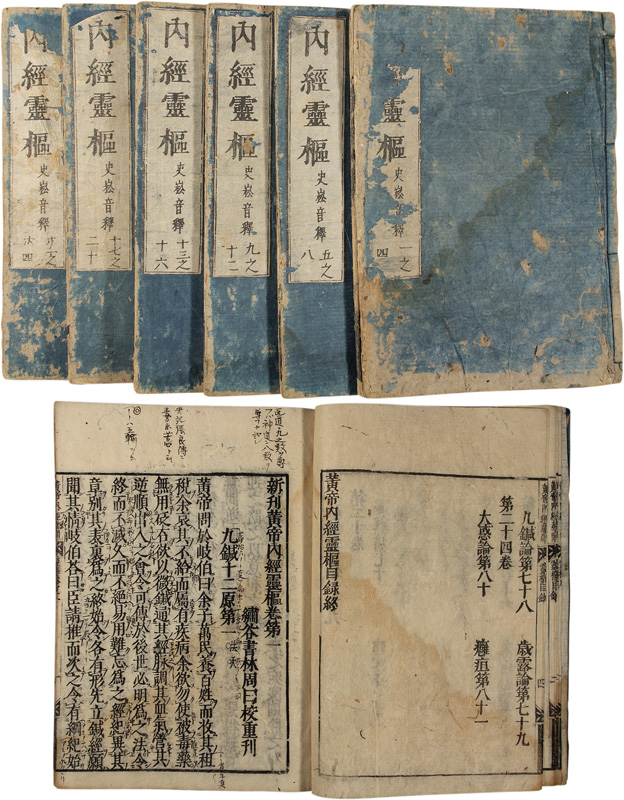 靈樞
史崧音釋
一之
四
內經靈樞
史崧音釋
五之
八
內經靈樞
史崧音釋
九之
十二
內經靈樞
史崧音釋
十三之
十六
內經靈樞
史崧音釋
十七之
二十
內經靈樞
史崧音釋
九鍼論第七十八
歲露論第七十九
第二十四卷
大惑論第八十
癰疽第八十一
黃帝內經靈樞目録終
新刊黃帝內經靈樞卷第一
繡谷書林周曰校重刊
九鍼十二原第一 法天
黃帝問於岐伯曰余子萬民養百姓而收其租
稅余哀其不給而屬有疾病余欲勿使被毒藥
無用砭石欲以微鍼通其經脉調其血氣營其
逆順出入之會令可傳於後世必明為之法令
終而不滅久而不絕易用難忘為之經紀異其
章別其表裏為之終始令各有形先立鍼經願
聞其情岐伯答曰臣請推而次之令有綱紀始